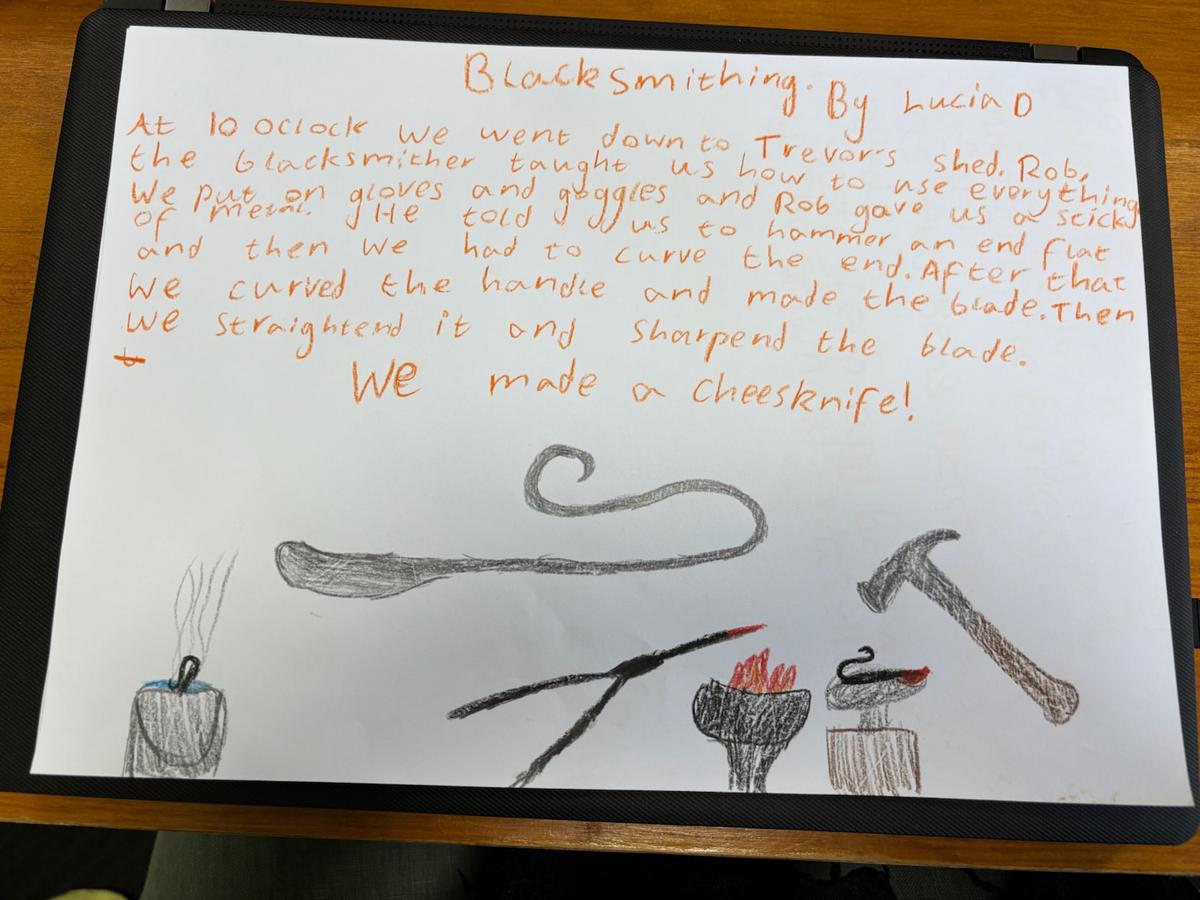 Blacksmithing. By Lucia D
At 10 oclock we went down to Trevor's shed. Rob,
the blacksmither taught us how to use everything
We put on gloves and goggles and Rob gave us a stick
of metal. He told us to hammer an end flat
and then we had to curve the end. After that
we curved the handle and made the blade. Then
we straightend it and sharpend the blade.
We made a cheesknife!